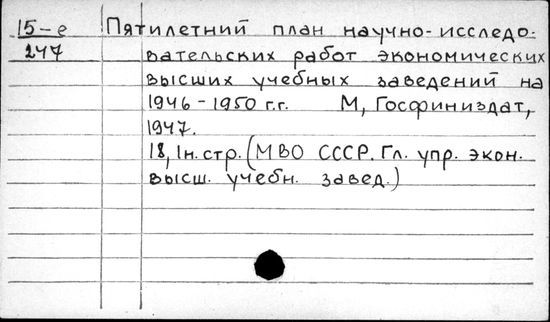 15-е Пятилетний план научно-исследо-
247 вательских работ экономических
высших учебных заведений на
1946-1950 г.г. М, Госфиниздат,
1947.
18, 1н. стр. (МВО СССР. Гл. упр. экон.
высш. учебн. завед.)